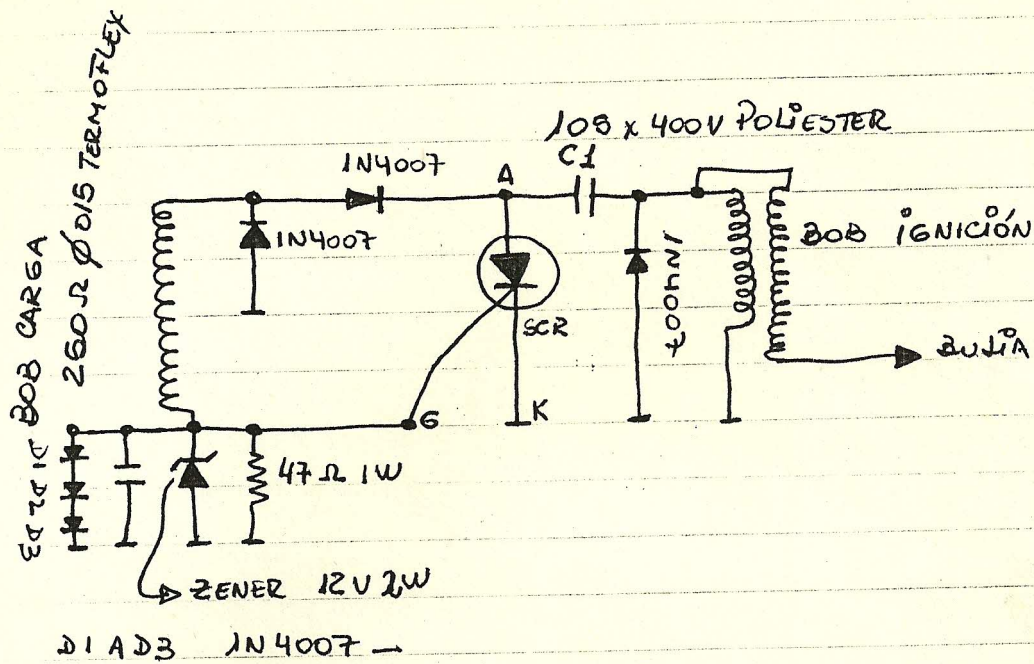 BOB CARGA
260Ω Ø 015 TERMOFLEX
105 x 400V POLIESTER
C1
1N4007
A
1N4007
SCR
1N4007
BOB IGNICIÓN
BUJIA
G
K
D1 D2 D3
47Ω 1W
ZENER 12V 2W
D1 A D3 1N4007